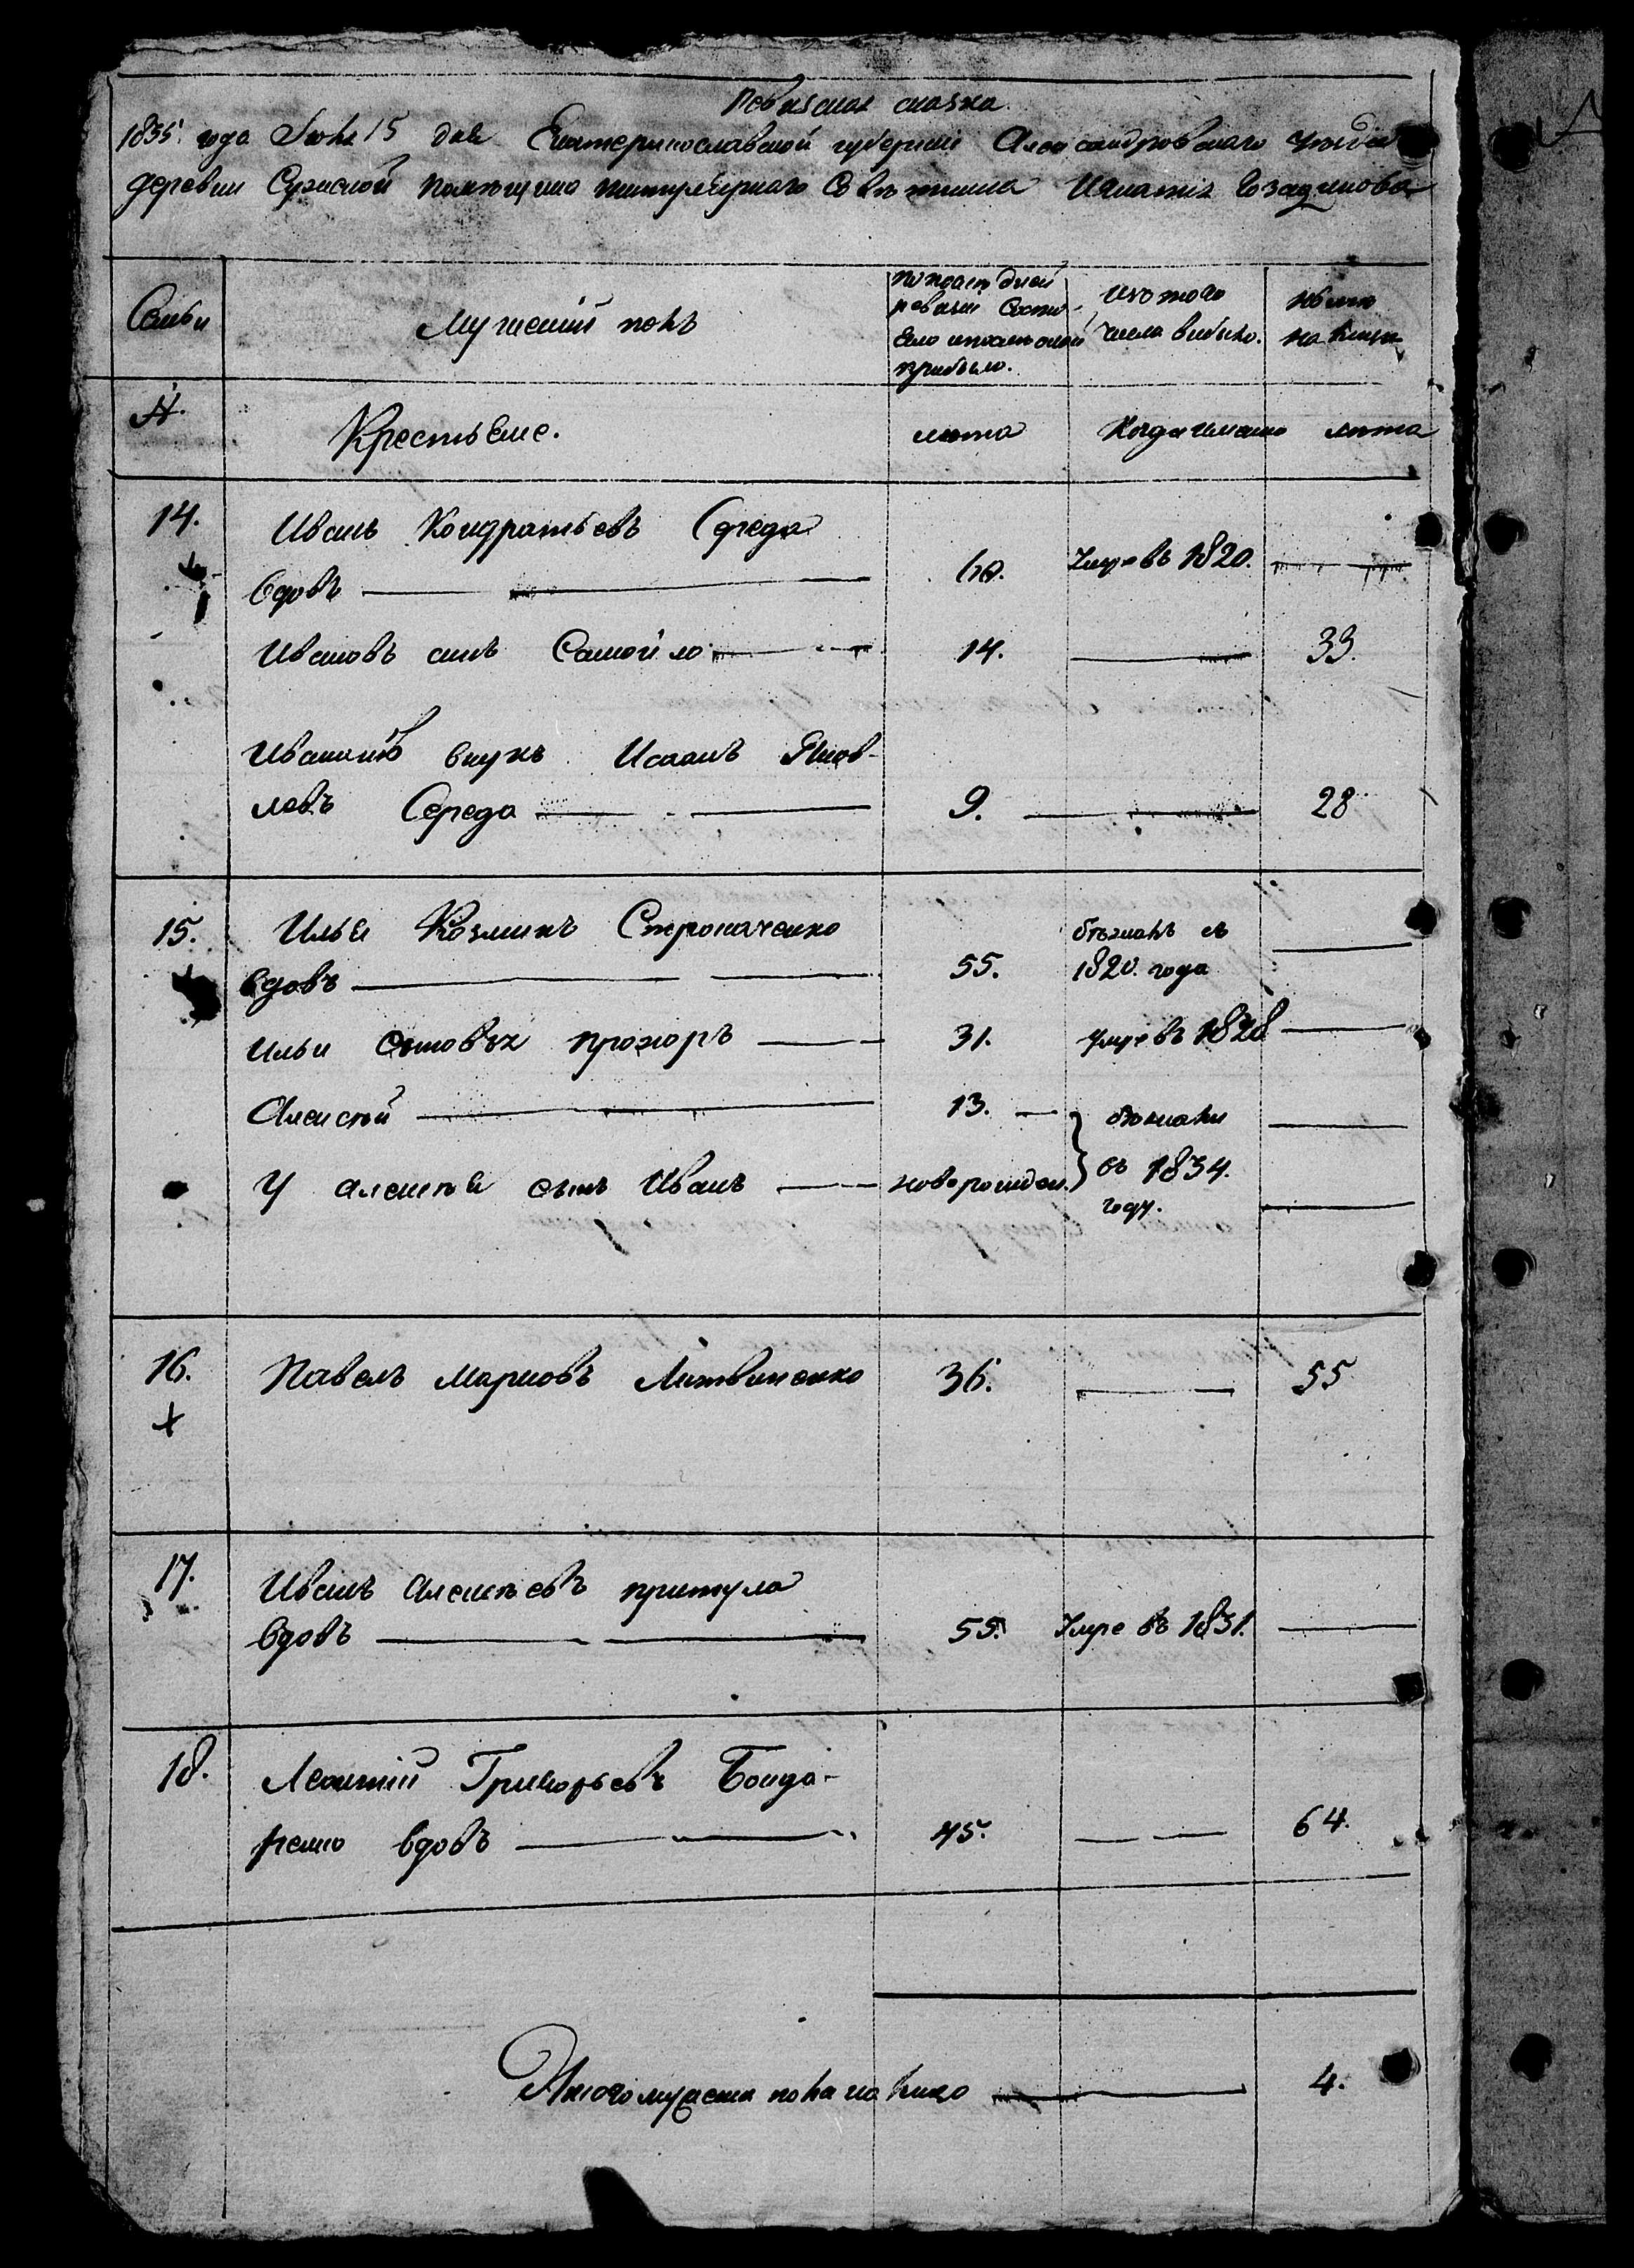 Ревизская сказка
1835. года Июня 15 дня Екатеринославской губернии Александровского уезда
деревни помещика титулярного Советника Игнатия
Семьи
Мужеский полъ
По последней
ревизии состо-
яло и после оной
прибыло.
Изъ того
числа выбыло.
Ныне
на лицо
№.
Крестьяне.
лета
Когда именно
лета
14.
Иванъ Кондратьевъ Середа
вдовъ
60.
Умре въ 1820.
Ивановъ сынъ Самойло
14.
33.
Ивановъ внукъ Исаакъ Яков-
левъ Середа
9.
28
15.
Илья Козминъ
вдовъ
55.
бежалъ съ
1820. года
Ильи сыновья Прохоръ
31.
Умре въ 1828
Алексей
13.
бежали
въ 1834.
году.
У Алексея сынъ Иванъ
новорожден.
16.
Павелъ Марковъ Литвиненко
36.
55
17.
Иванъ Алексеевъ Притула
вдовъ
55.
Умре въ 1831.
18.
Леонтий Григорьевъ Бонда-
ренко вдовъ
45.
64.
Итого мужеска пола на лицо
4.